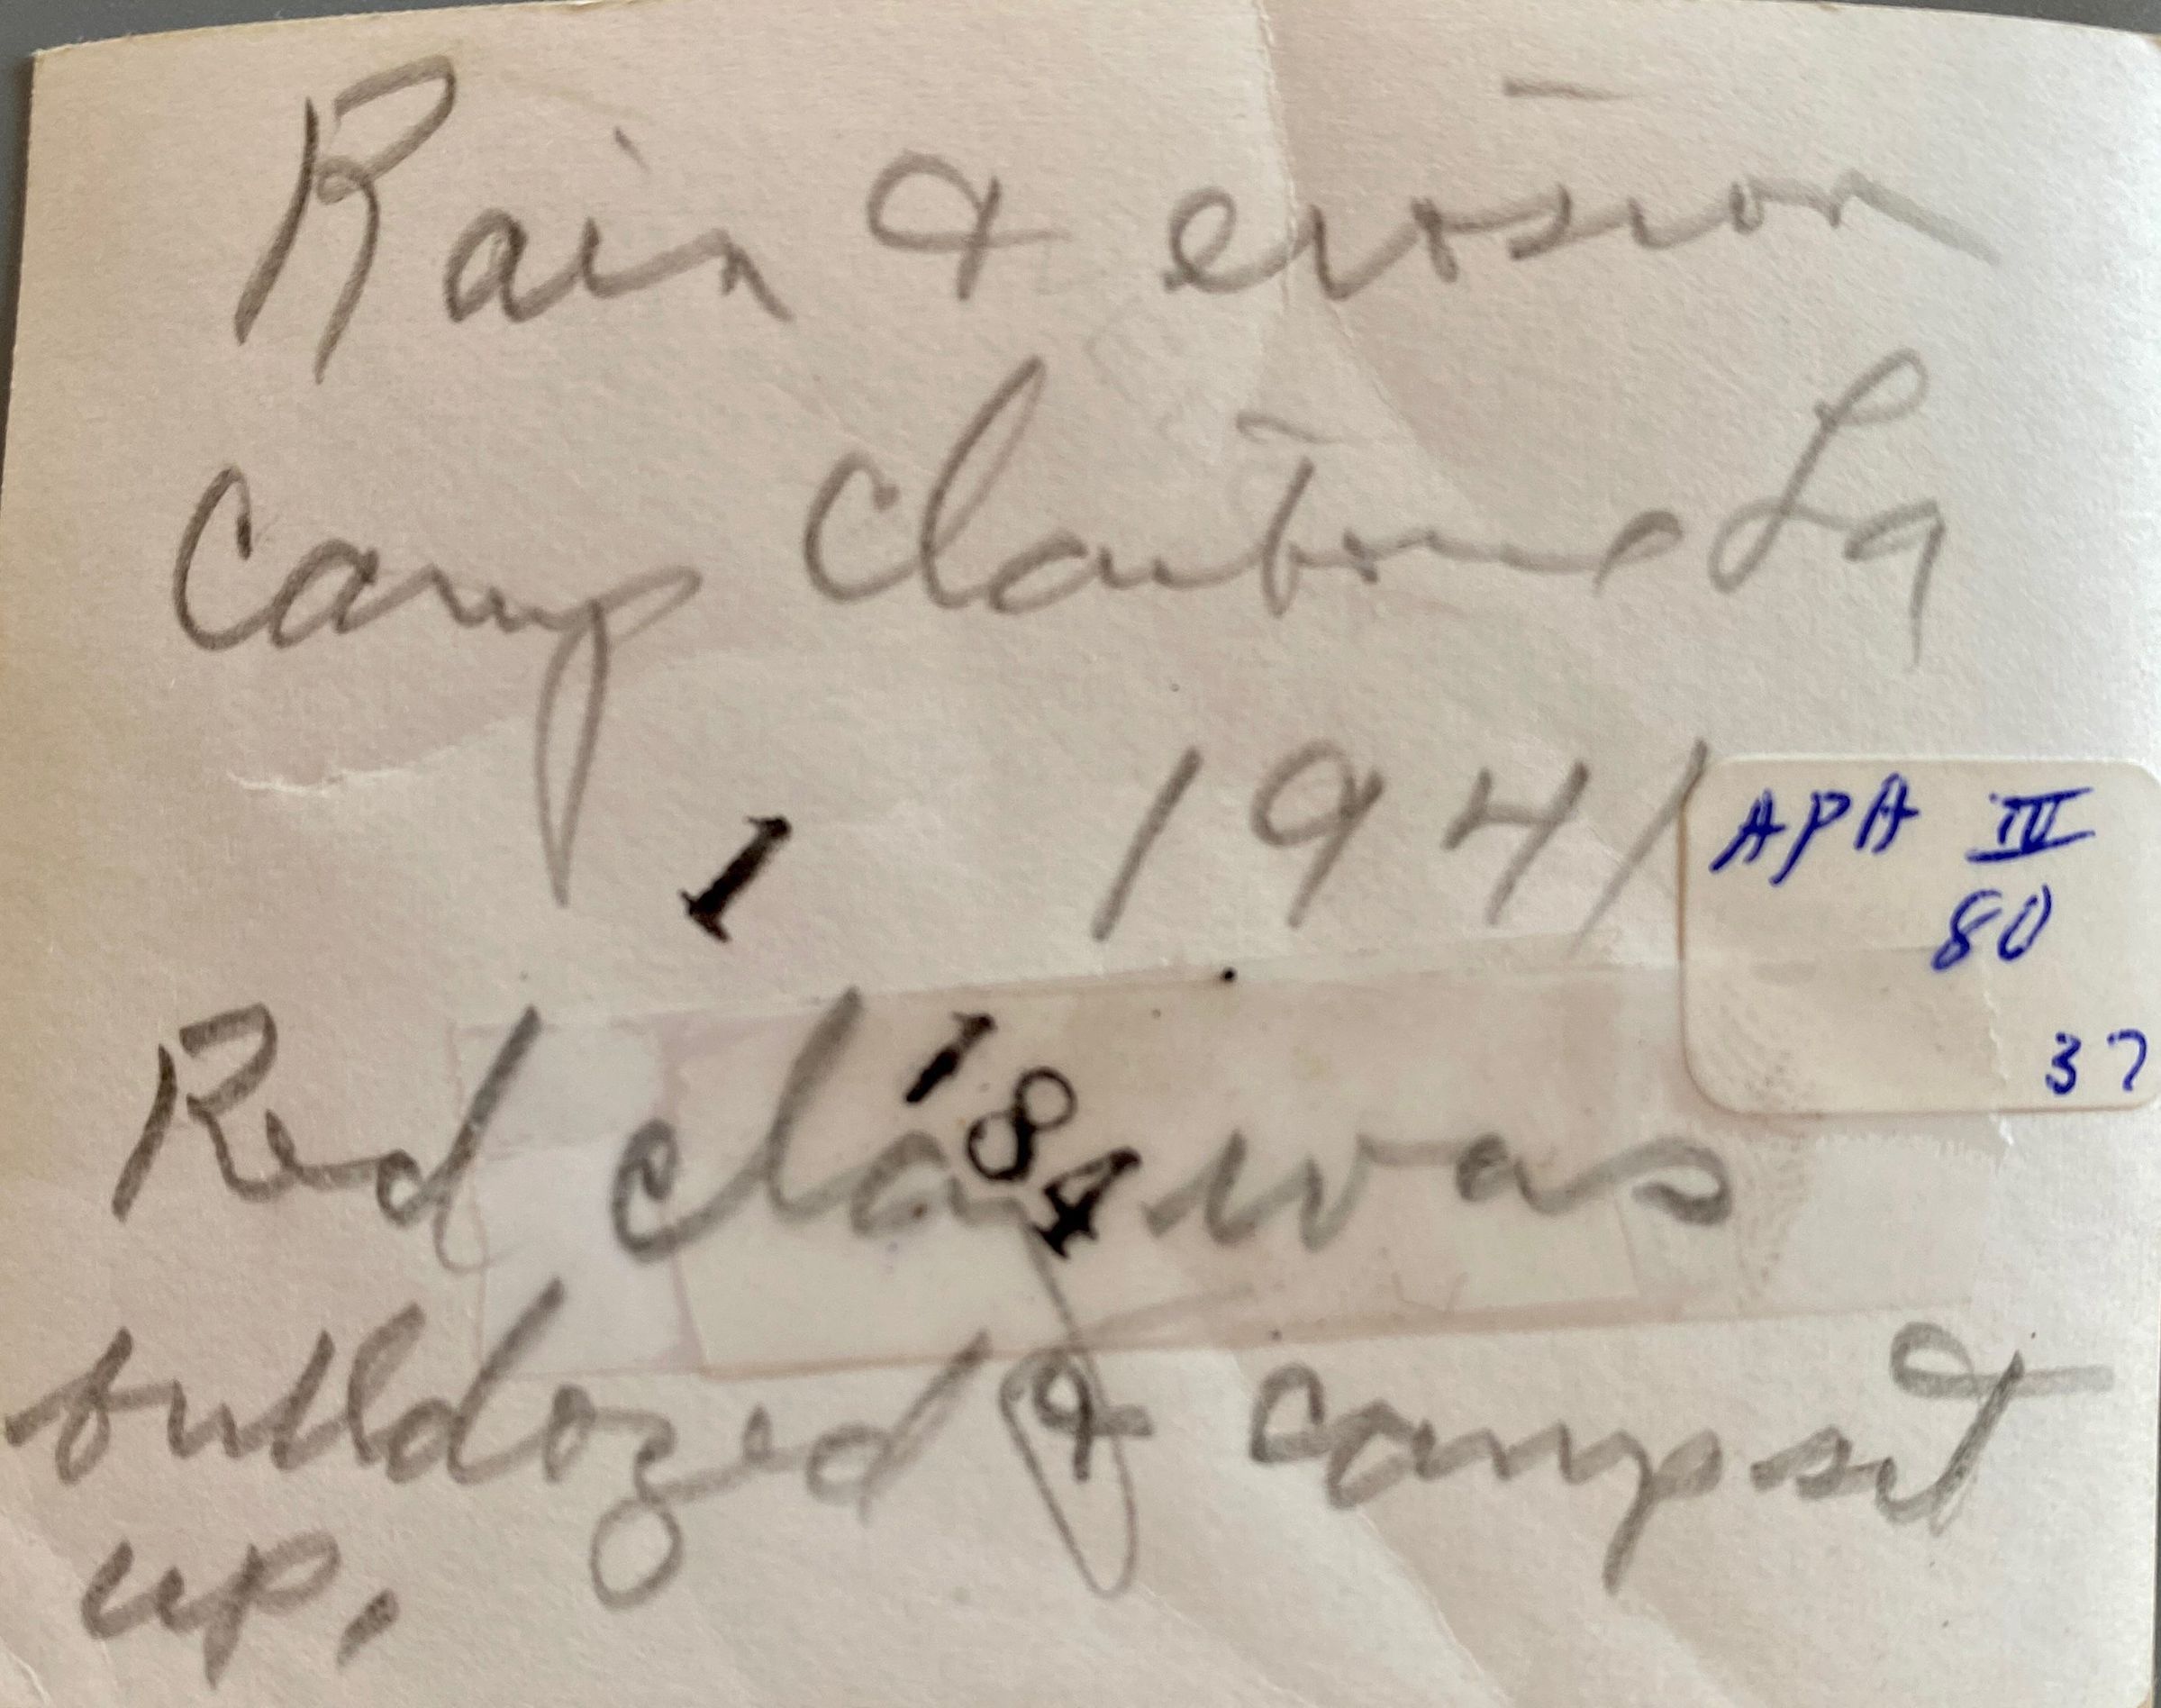 Rain & erosion
Camp Claiborne La
1941
APA III
80
37
1
184
Red clay was
bulldozed & camp set
up.